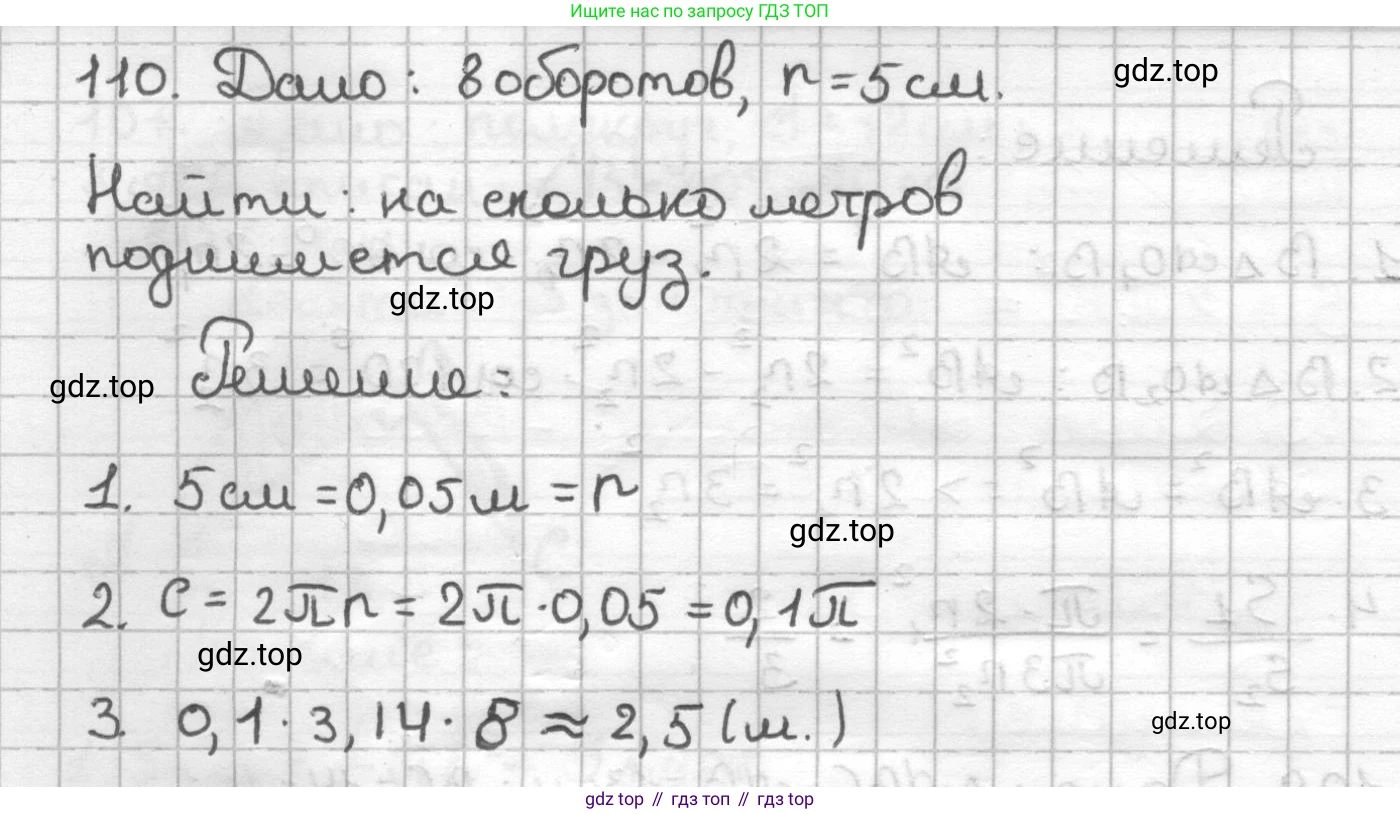 Ищите нас по запросу ГДЗ ТОП
110. Дано: 8 оборотов, r = 5 см.
gdz.top
Найти: на сколько метров
поднимется груз.
gdz.top
Решение:
gdz.top
1. 5 см = 0,05 м = r
gdz.top
2. C = 2πr = 2π · 0,05 = 0,1π
gdz.top
3. 0,1 · 3,14 · 8 ≈ 2,5 (м.)
gdz.top
gdz top // гдз топ // гдз top